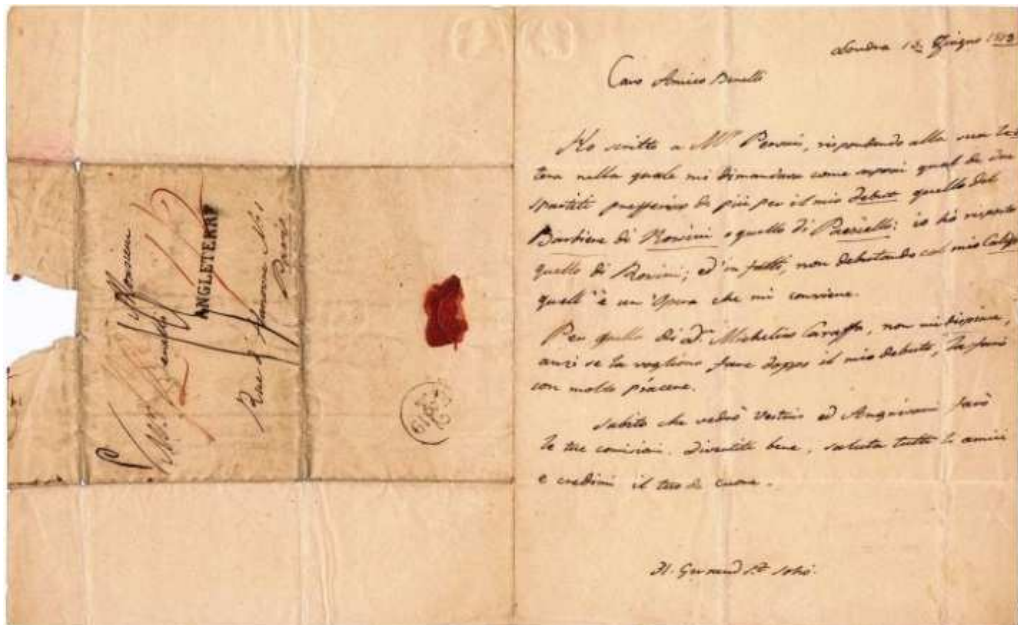 Monsieur
Benelli
ANGLETERRE
Rue
Paris
Londra 15 Giugno
Caro Amico Benelli
Ho scritto a Mr. Persuis, rispondendo alla sua let
tera nella quale mi dimandava come saprai qual de due
spartiti prefferivo di più per il mio debut quello del
Barbiere di Rossini o quello di Paesiello: io hò risposto
quello di Rossini; ed in fatti, non debutando col mio
quell' è un' Opera che mi conviene.
Per quello di Dn. Michelino Caraffa, non mi dispiace,
anzi se la vogliono fare doppo il mio debuto, la farò
con molto piacere.
Subito che vedrò Vestris ed Angrisani farò
le tue comisioni. Divertiti bene, saluta tutti li amici
e credimi il tuo di cuore.
31. Gerrard St. Soho.